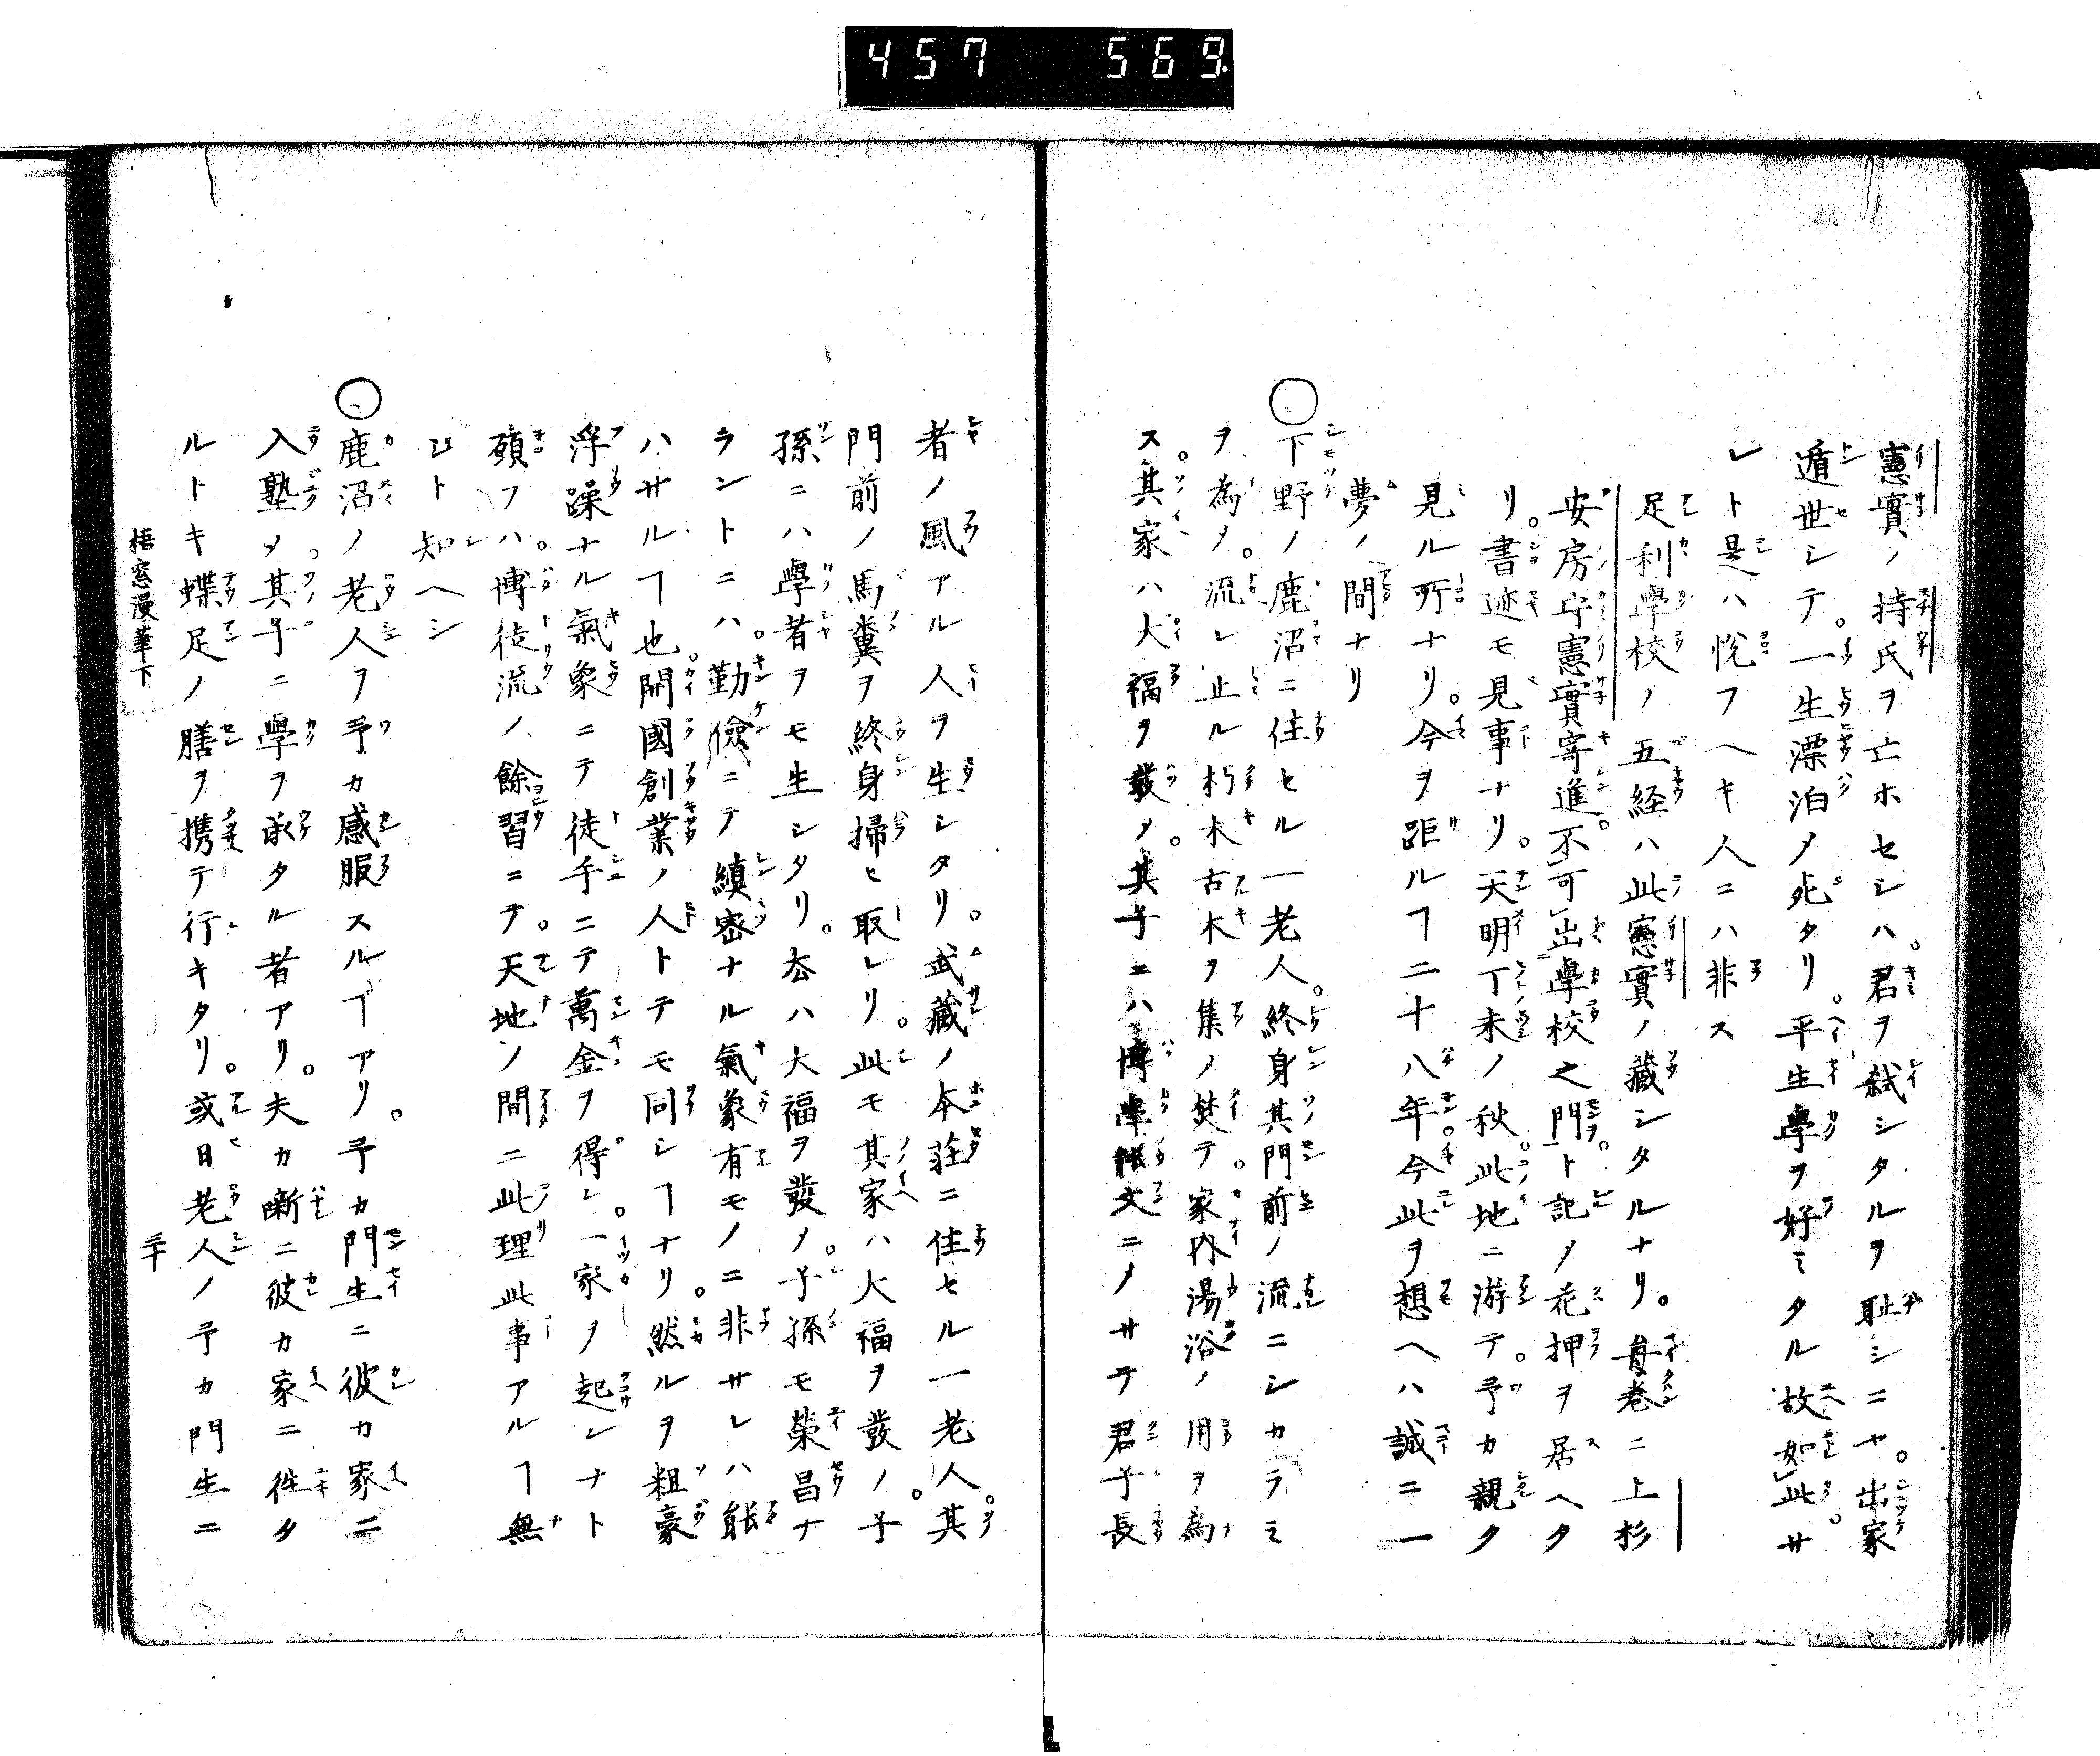 457 569.
憲實ノ持氏ヲ亡ホセシハ。君ヲ弑シタルヲ耻シニヤ。出家
遁世シテ。一生漂泊〆死タリ。平生學ヲ好ミタル故如此。サ
レト是ハ悦フヘキ人ニハ非ス
足利學校ノ五経ハ此憲實ノ藏シタルナリ。毎巻ニ上杉
安房守憲實寄進。不可出學校之門。ト記〆花押ヲ居ヘタ
リ。書迹モ見事ナリ。天明丁未ノ秋。此地ニ游テ。予カ親ク
見ル所ナリ。今ヲ距ルヿ二十八年。今此ヲ想ヘハ誠ニ一
夢ノ間ナリ
○下野ノ鹿沼ニ住セル一老人。終身其門前ノ流ニシカラミ
ヲ為〆。流レ止ル朽木古木ヲ集メ焚テ。家内湯浴ノ用ヲ為
ス。其家ハ大福ヲ發〆。其子ニハ博學能文ニ〆サテ君子長
者ノ風アル人ヲ生シタリ。武藏ノ本荘ニ住セル一老人。其
門前ノ馬糞ヲ終身掃ヒ取レリ。此モ其家ハ大福ヲ發〆。子
孫ニハ學者ヲモ生シタリ。夲ハ大福ヲ發〆。子孫モ榮昌ナ
ラントニハ。勤儉ニテ縝密ナル氣象有モノニ非サレハ能
ハサルヿ也。開國創業ノ人トテモ同シヿナリ。然ルヲ粗豪
浮躁ナル氣象ニテ徒手ニテ萬金ヲ得レ。一家ヲ起シナト
碩フハ。博徒流ノ餘習ニテ。天地ノ間ニ此理此事アルヿ無
シト知ヘシ
○鹿沼ノ老人ヲ予カ感服スルヿアリ。予カ門生ニ彼カ家ニ
入塾〆。其子ニ學ヲ承タル者アリ。夫カ噺ニ彼カ家ニ徃タ
ルトキ蝶足ノ膳ヲ携テ行キタリ。或日老人ノ予カ門生ニ
梧窓漫筆下
三十